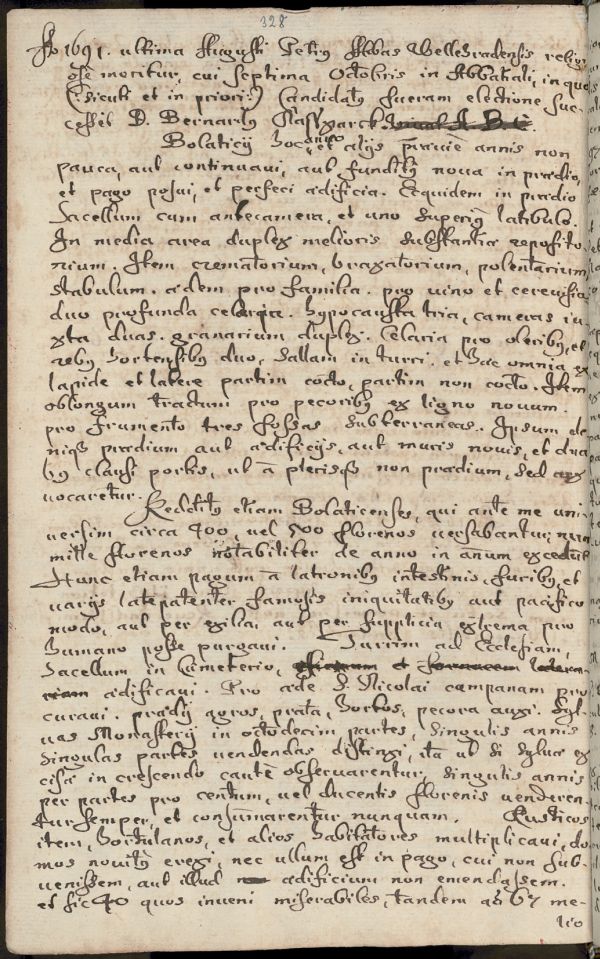 328
Ao 1691. ultima Augusti Petrus Abbas Wellehradensis religi-
ose moritur, cui septima Octobris in Abbatali, in qua
(: sicuti et in priori :) Candidatus fueram electione, suc-
cessit D. Bernardus
Bolaticij hoc anno, et alijs praeviè annis non
pauca, aut continuavi, aut funditus nova in praedio,
et pago posui, et perfeci aedificia. Et quidem in praedio
Sacellum cum antecamera, et uno superius latibulo.
In media area duplex melioris substantiae reposito-
rium. Item crematorium, braxatorium, polentarium,
stabulum. aedem pro familia. pro vino et cerevisia
duo profunda celaria. hypocausta tria, cameras iu-
xta duas. granarium duplex. Celaria pro oleribus, et
rebus hortensibus duo, Sallam in turri. et haec omnia ex
lapide et latere partim cocto, partim non cocto. Item
oblongum tractum pro pecoribus ex ligno novum.
pro frumento tres fossas subterraneas. Ipsum de
nique praedium aut aedificijs, aut muris novis, et dua
bus clausi portis, ut à plerisque non praedium, sed arx
vocaretur.
Redditus etiam Bolaticenses, qui ante me uni-
versim circa 400, vel 500 florenos versabantur, nunc
mille florenos notabiliter de anno in annum excedunt
Hunc etiam pagum à latronibus intestinis, furibus, et
varijs latè patenter famosis iniquitatibus aut pacifico
modo, aut per exilia, aut per supplicia extrema pro
humano posse purgavi. Turrim ad Ecclesiam,
Sacellum in Cimeterio,
aedificavi. Pro aede S. Nicolai campanam pro
curavi. praedij agros, prata, hortos, pecora auxi. Syl-
vas Monasterij in octodecim partes, singulis annis
singulas partes vendendas distinxi, ità ut si sylvae ex
cisae in crescendo cautè observarentur, singulis annis
per partes pro centum, vel ducentis florenis venderen-
tur semper, et consumarentur nunquam. Rusticos
item, hortulanos, et alios habitatores multiplicavi, do
mos noviter erexi, nec ullum est in pago, cui non sub-
venissem, aut illud aedificium non emendassem.
et sic 40 quos inveni miserabiles, tandem ad 67 me-
lio